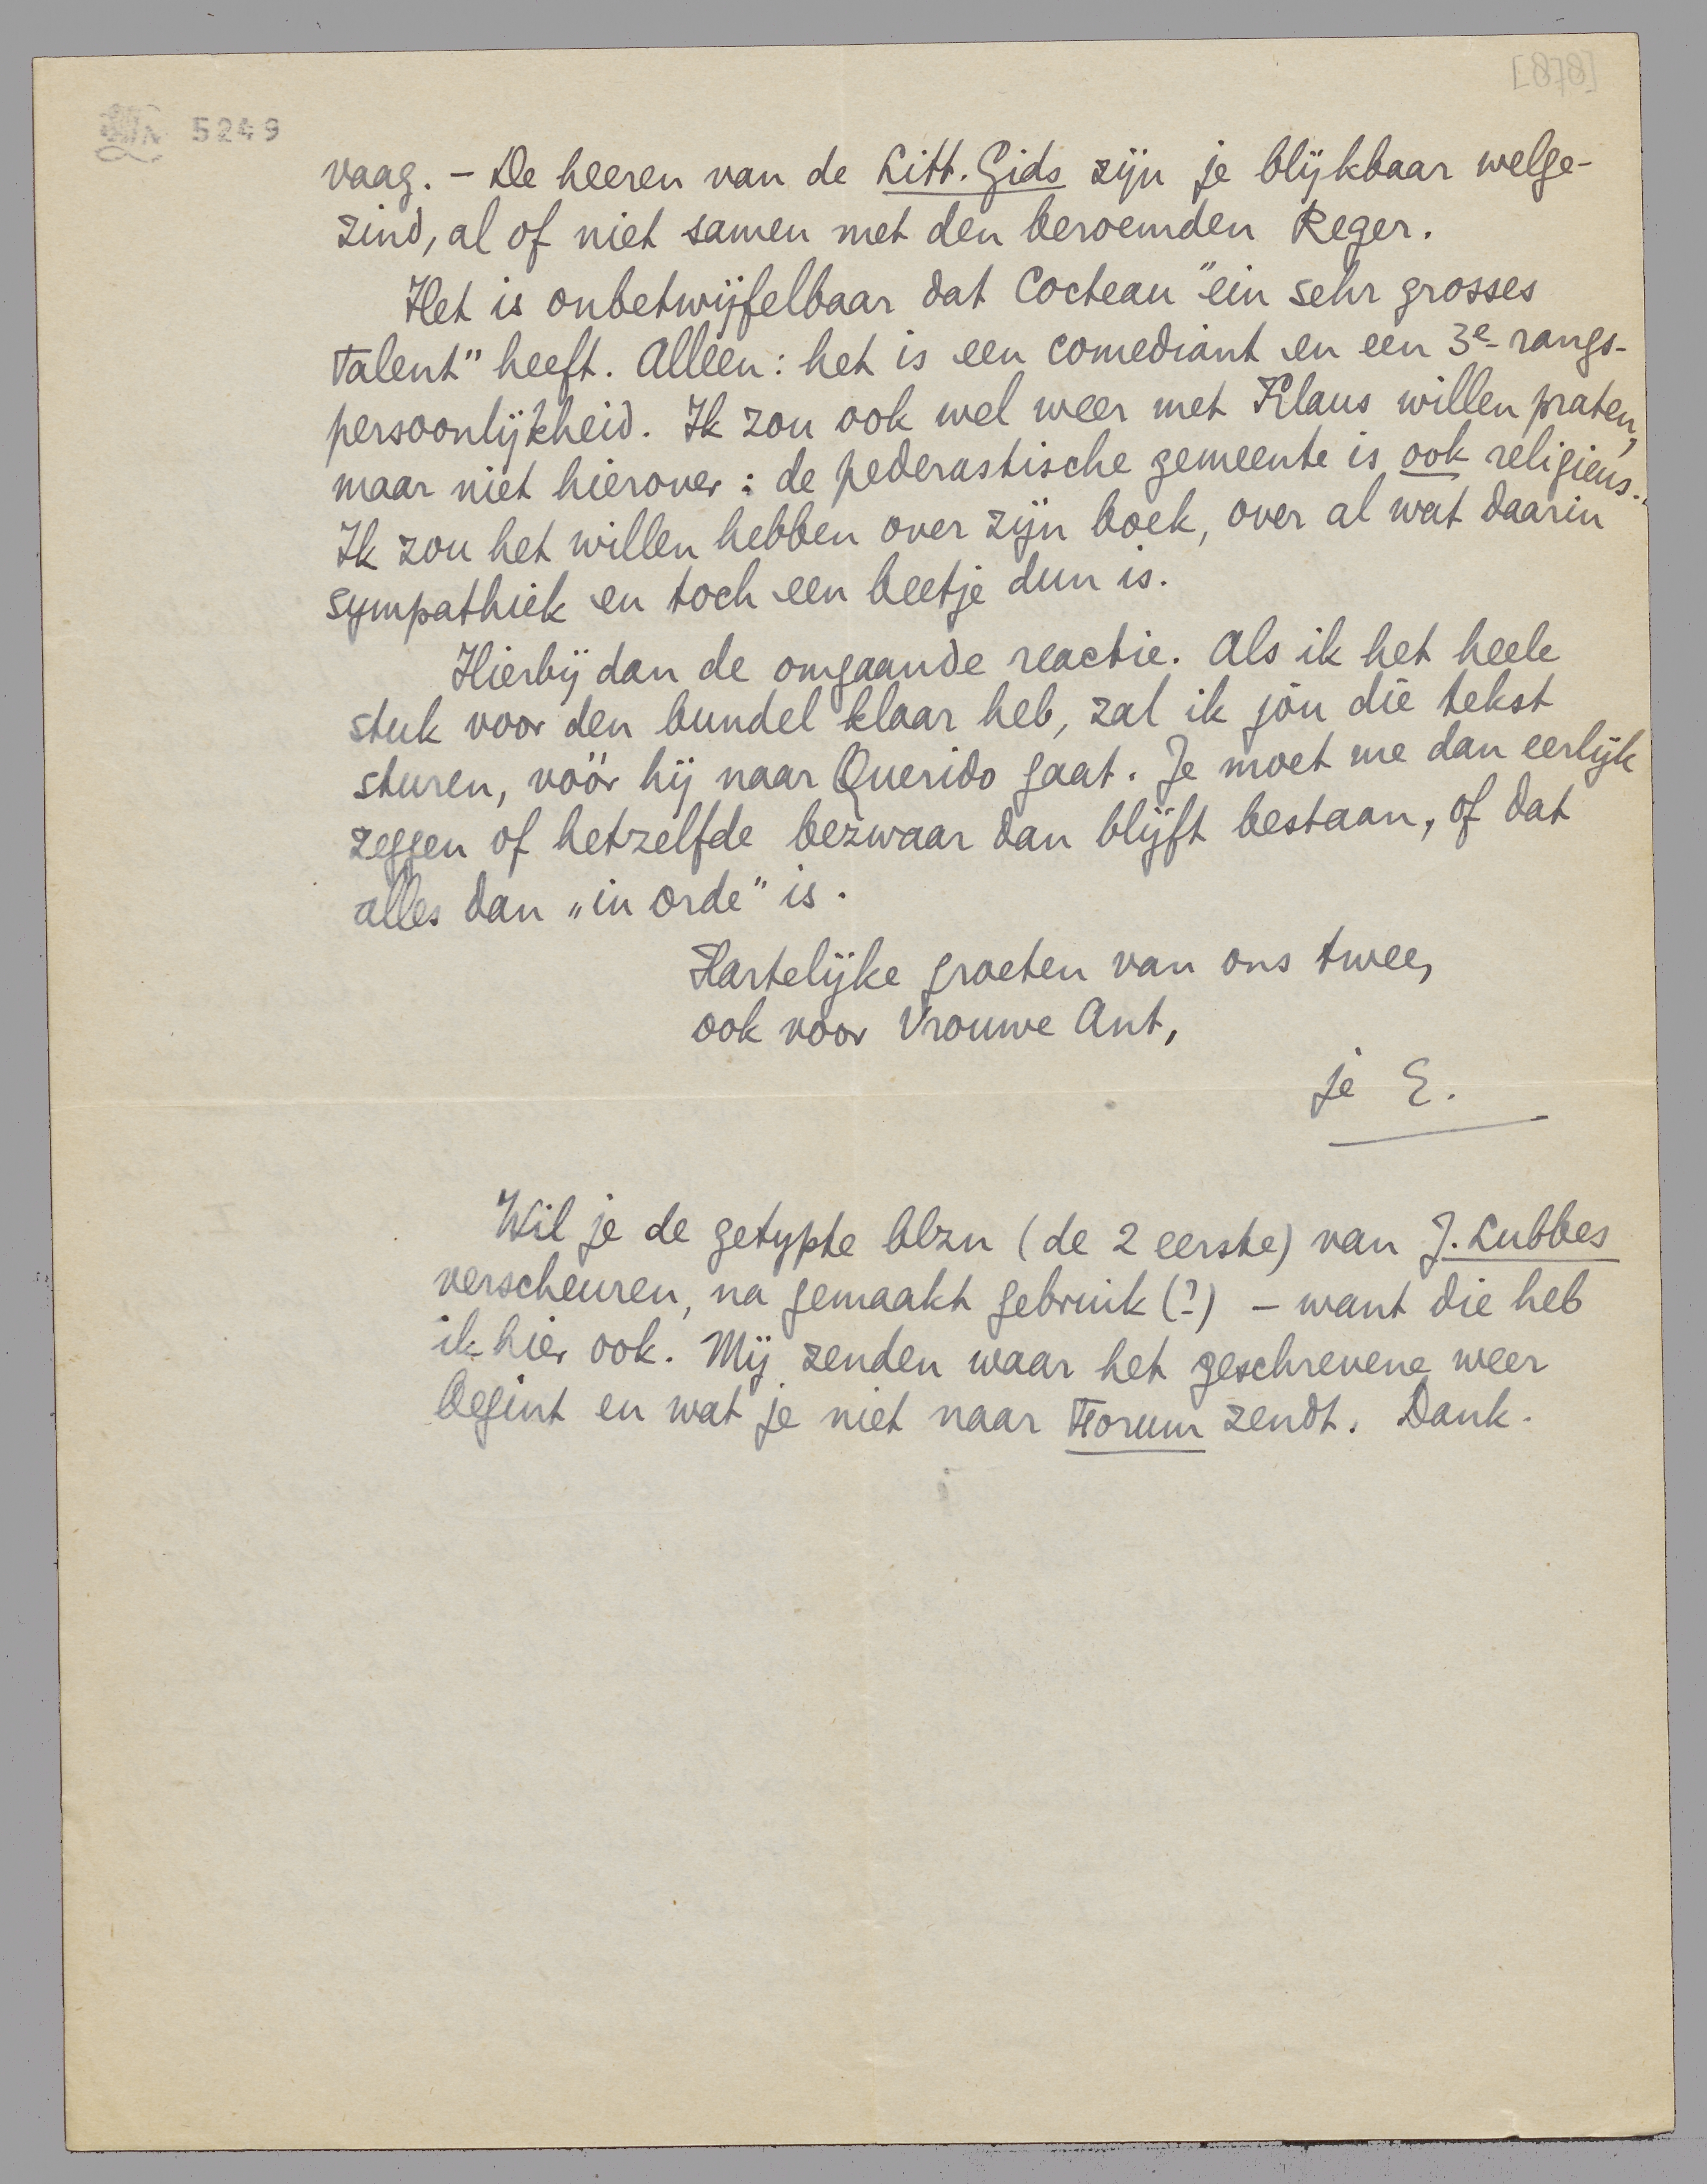 [878]
5249
vaag. – De heeren van de Litt. Gids zijn je blijkbaar welge-
zind, al of niet samen met den beroemden Reger.
Het is onbetwijfelbaar dat Cocteau "ein sehr grosses
Talent" heeft. Alleen: het is een comediant en een 3e-rangs-
persoonlijkheid. Ik zou ook wel weer met Klaus willen praten,
maar niet hierover: de pederastische gemeente is ook religieus..
Ik zou het willen hebben over zijn boek, over al wat daarin
sympathiek en toch een beetje dun is.
Hierbij dan de omgaande reactie. Als ik het heele
stuk voor den bundel klaar heb, zal ik jóu díe tekst
sturen, vóór hij naar Querido gaat. Je moet me dan eerlijk
zeggen of hetzelfde bezwaar dan blijft bestaan, of dat
alles dan „in orde" is.
Hartelijke groeten van ons twee,
ook voor Vrouwe Ant,
je E.
Wil je de getypte blzn (de 2 eerste) van J. Lubbes
verscheuren, na gemaakt gebruik (?) – want die heb
ik hier ook. Mij zenden waar het geschrevene weer
begint en wat je niet naar Forum zendt. Dank.